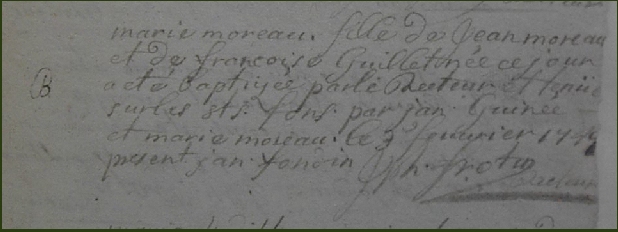 marie moreau. fille de Jean moreau
et de francoise Guilletinée ce jour
B a eté baptisée par le Recteur et tenüe
sur les sts. fons. par jan Guinée
et marie moreau. le 3e fevvrier
present jan fondin
Recteur